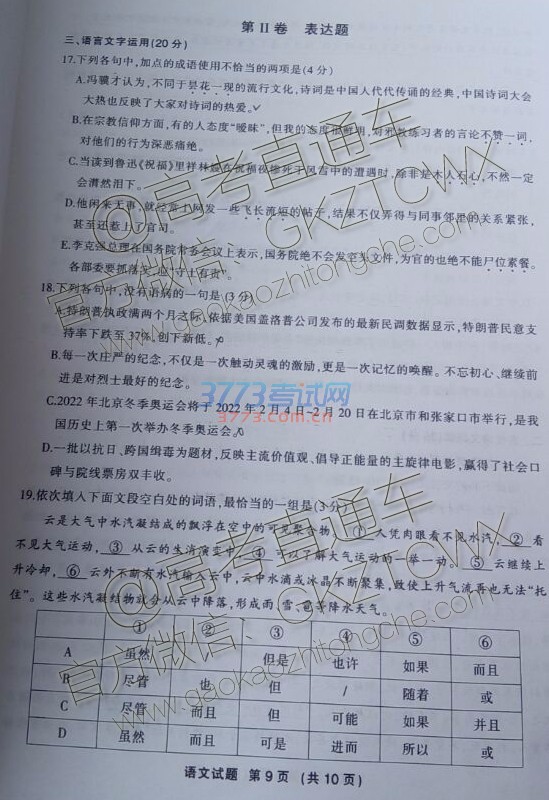 第Ⅱ卷 表达题
三、语言文字运用(20分)
17.下列各句中,加点的成语使用不恰当的两项是(4分)
A.冯骥才认为,不同于昙花一现的流行文化,诗词是中国人代代传诵的经典,中国诗词大会
大热也反映了大家对诗词的热爱。
B.在宗教信仰方面,有的人态度“暧昧”,但我的态度很鲜明,对邪教练习者的言论不赞一词,
对他们的行为深恶痛绝。
C.当读到鲁迅《祝福》里祥林嫂在祝福夜惨死于风雪中的遭遇时,除非是木人石心,不然一定
会潸然泪下。
D.他闲来无事,就经常上网发一些飞长流短的帖子,结果不仅弄得与同事邻里的关系紧张,
甚至还惹上了官司。
E.李克强总理在国务院常务会议上表示,国务院绝不会发空头文件,为官的也绝不能尸位素餐。
各部委要抓落实,应“守土有责”。
18.下列各句中,没有语病的一句是(3分)
A.特朗普执政满两个月之际,依据美国盖洛普公司发布的最新民调数据显示,特朗普民意支
持率下跌至37%,创下新低。
B.每一次庄严的纪念,不仅是一次触动灵魂的激励,更是一次记忆的唤醒。不忘初心、继续前
进是对烈士最好的纪念。
C.2022年北京冬季奥运会将于2022年2月4日-2月20日在北京市和张家口市举行,是我
国历史上第一次举办冬季奥运会。
D.一批以抗日、跨国缉毒为题材,反映主流价值观、倡导正能量的主旋律电影,赢得了社会口
碑与院线票房双丰收。
19.依次填入下面文段空白处的词语,最恰当的一组是(3分)
云是大气中水汽凝结成的飘浮在空中的可见聚合物。①人凭肉眼看不见水汽,②看
不见大气运动,③从云的生消演变中,④可以了解大气运动的一举一动。⑤云继续上
升冷却,⑥云外不断有水汽输入云中,云中水滴或冰晶不断聚集,致使上升气流再也无法“托
住”。这些水汽凝结物就会从云中降落,形成雨、雪、雹等降水天气。
① ② ③ ④ ⑤ ⑥
A 虽然 但是 也许 如果 而且
B 尽管 也 但 / 随着 或
C 尽管 而且 但 可能 如果 并且
D 虽然 而且 可是 进而 所以 或
语文试题 第9页 (共10页)
@高考直通车
官方微信:GKZTCWX
www.gaokaozhitongche.com
3773考试网
3773.com.cn
@高考直通车
官方微信:GKZTCWX
www.gaokaozhitongche.com